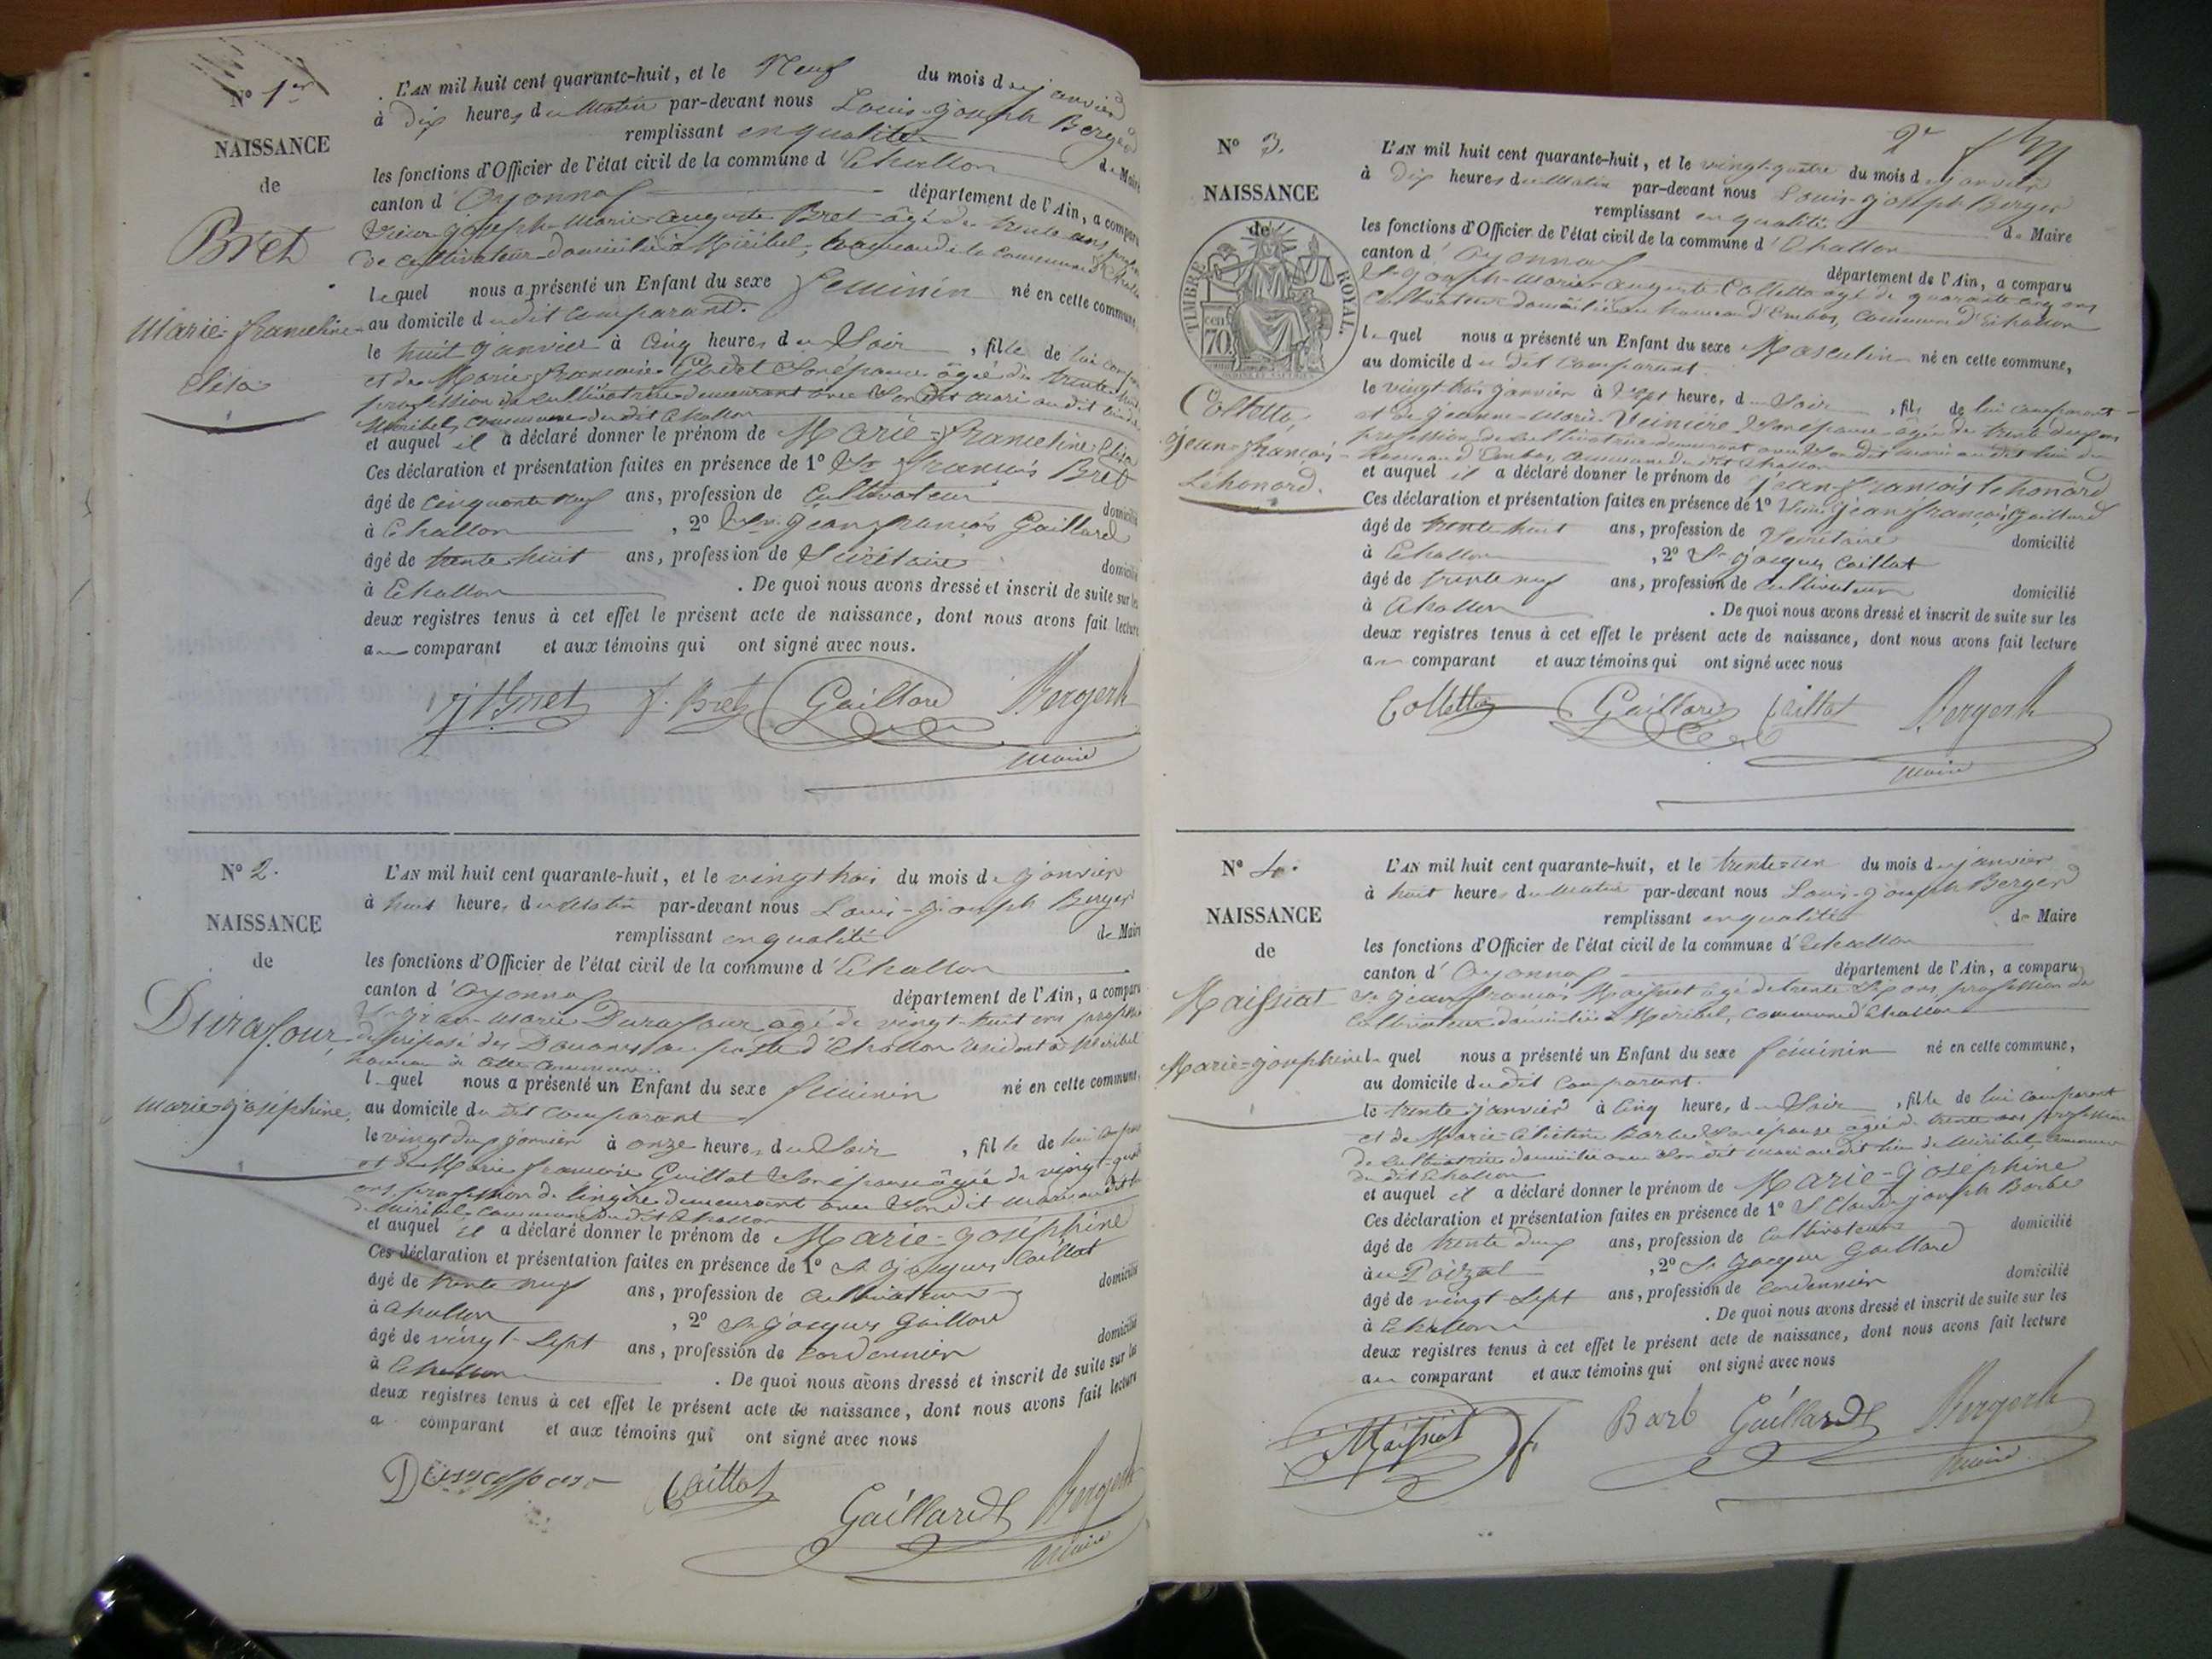 N° 1er
NAISSANCE
de
Bret
Marie-franceline
Elisa
L'AN mil huit cent quarante-huit, et le Neuf du mois de janvier
à dix heures du Matin par-devant nous Louis-joseph Berger
remplissant en qualité de Maire
les fonctions d'Officier de l'état civil de la commune d'Echallon
canton d'Oyonnax département de l'Ain, a comparu
Sieur joseph-Marie-auguste Bret âgé de trente ans
de cultivateur domicilié à Miribel, hameau de la commune
lequel nous a présenté un Enfant du sexe féminin né en cette commune,
au domicile du dit comparant.
le huit janvier à Cinq heures du Soir, fille de lui
et de Marie françoise Godet Son épouse âgée de trente
profession de cultivatrice demeurant avec Son dit mari au dit lieu de
Miribel, commune du dit Echallon
et auquel il a déclaré donner le prénom de Marie=francline Elisa
Ces déclaration et présentation faites en présence de 1° Sr françois Bret
âgé de cinquante neuf ans, profession de Cultivateur domicilié
à Echallon, 2° Sr jean françois Gaillard
âgé de trente huit ans, profession de Secrétaire domicilié
à Echallon. De quoi nous avons dressé et inscrit de suite sur les
deux registres tenus à cet effet le présent acte de naissance, dont nous avons fait lecture
au comparant et aux témoins qui ont signé avec nous.
Bret f. Bret Gaillard Berger
Maire
N° 2.
NAISSANCE
de
Durafour
Marie-joséphine
L'AN mil huit cent quarante-huit, et le vingt trois du mois de janvier
à huit heures du Matin par-devant nous Louis-joseph Berger
remplissant en qualité de Maire
les fonctions d'Officier de l'état civil de la commune d'Echallon
canton d'Oyonnax département de l'Ain, a comparu
Sr jean-Marie Durafour âgé de vingt-huit ans
de préposé des Douanes au poste d'Echallon résidant à Miribel
hameau de cette commune.
lequel nous a présenté un Enfant du sexe féminin né en cette commune,
au domicile du dit comparant
le vingt deux janvier à onze heures du Soir, fille de lui
et de Marie françoise Guillot Son épouse âgée de vingt-
ans profession de lingère demeurant avec Son dit mari au dit
de Miribel commune du dit Echallon
et auquel il a déclaré donner le prénom de Marie-joséphine
Ces déclaration et présentation faites en présence de 1° Sr jacques Caillat
âgé de trente neuf ans, profession de Cultivateur domicilié
à Echallon, 2° Sr jacques Gaillard
âgé de vingt-Sept ans, profession de Cordonnier domicilié
à Echallon. De quoi nous avons dressé et inscrit de suite sur les
deux registres tenus à cet effet le présent acte de naissance, dont nous avons fait lecture
a comparant et aux témoins qui ont signé avec nous
Durafour Caillat
Gaillard Berger
Maire
2e
N° 3.
NAISSANCE
de
TIMBRE ROYAL.
70
Colletta
jean-françois-
Léhonard.
L'AN mil huit cent quarante-huit, et le vingt-quatre du mois de janvier
à dix heures du Matin par-devant nous Louis-joseph Berger
remplissant en qualité de Maire
les fonctions d'Officier de l'état civil de la commune d'Echallon
canton d'Oyonnax département de l'Ain, a comparu
Sr joseph-Marie-auguste Colletta âgé de quarante cinq ans
cultivateur domicilié au hameau d'Embos, commune d'Echallon
lequel nous a présenté un Enfant du sexe Masculin né en cette commune,
au domicile du dit comparant.
le vingt trois janvier à Sept heures du Soir, fils de lui comparant
et de jeanne-Marie Son épouse âgée de trente deux ans
profession de cultivatrice demeurant avec Son dit mari au dit lieu du
hameau d'Embos, commune du dit Echallon
et auquel il a déclaré donner le prénom de jean françois Léhonard
Ces déclaration et présentation faites en présence de 1° Sieur jean françois Gaillard
âgé de trente huit ans, profession de Secrétaire domicilié
à Echallon, 2° Sr jacques Caillat
âgé de trente neuf ans, profession de Cultivateur domicilié
à Echallon. De quoi nous avons dressé et inscrit de suite sur les
deux registres tenus à cet effet le présent acte de naissance, dont nous avons fait lecture
au comparant et aux témoins qui ont signé avec nous
Colletta Gaillard Caillat Berger
Maire
N° 4.
NAISSANCE
de
Maissiat
Marie=joséphine
L'AN mil huit cent quarante-huit, et le trente-un du mois de janvier
à huit heures du Matin par-devant nous Louis-joseph Berger
remplissant en qualité de Maire
les fonctions d'Officier de l'état civil de la commune d'Echallon
canton d'Oyonnax département de l'Ain, a comparu
Sr jean françois Maissiat âgé de trente Six ans, profession de
Cultivateur domicilié à Miribel, commune d'Echallon
lequel nous a présenté un Enfant du sexe féminin né en cette commune,
au domicile du dit comparant.
le trente janvier à Cinq heures du Soir, fille de lui comparant
et de Marie Barbe Son épouse âgée de trente ans profession
de cultivatrice domiciliée avec Son dit mari au dit lieu de Miribel commune
du dit Echallon
et auquel il a déclaré donner le prénom de Marie-joséphine
Ces déclaration et présentation faites en présence de 1° Sr Claude joseph Barbe
âgé de trente deux ans, profession de Cultivateur domicilié
au Poizat, 2° Sr jacques Gaillard
âgé de vingt Sept ans, profession de Cordonnier domicilié
à Echallon. De quoi nous avons dressé et inscrit de suite sur les
deux registres tenus à cet effet le présent acte de naissance, dont nous avons fait lecture
au comparant et aux témoins qui ont signé avec nous
Maissiat Barb Gaillard Berger
Maire